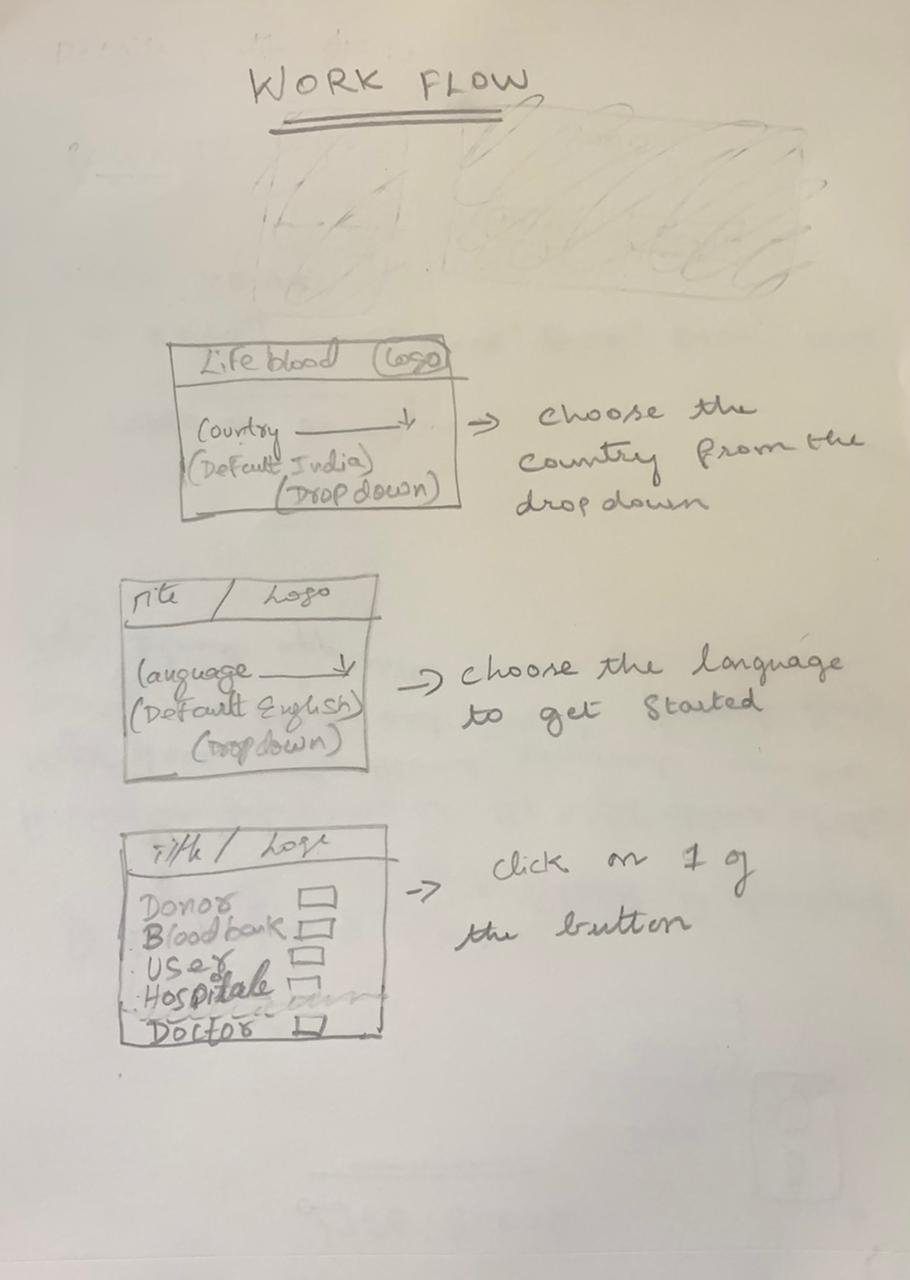 WORK FLOW
Life blood Logo
Country
(Default India)
(Drop down)
→ choose the
country from the
drop down
Title / Logo
Language
(Default English)
(Drop down)
→ choose the language
to get started
Title / Logo
Donor
Blood bank
User
Hospitale
Doctor
→ click on 1 of
the button